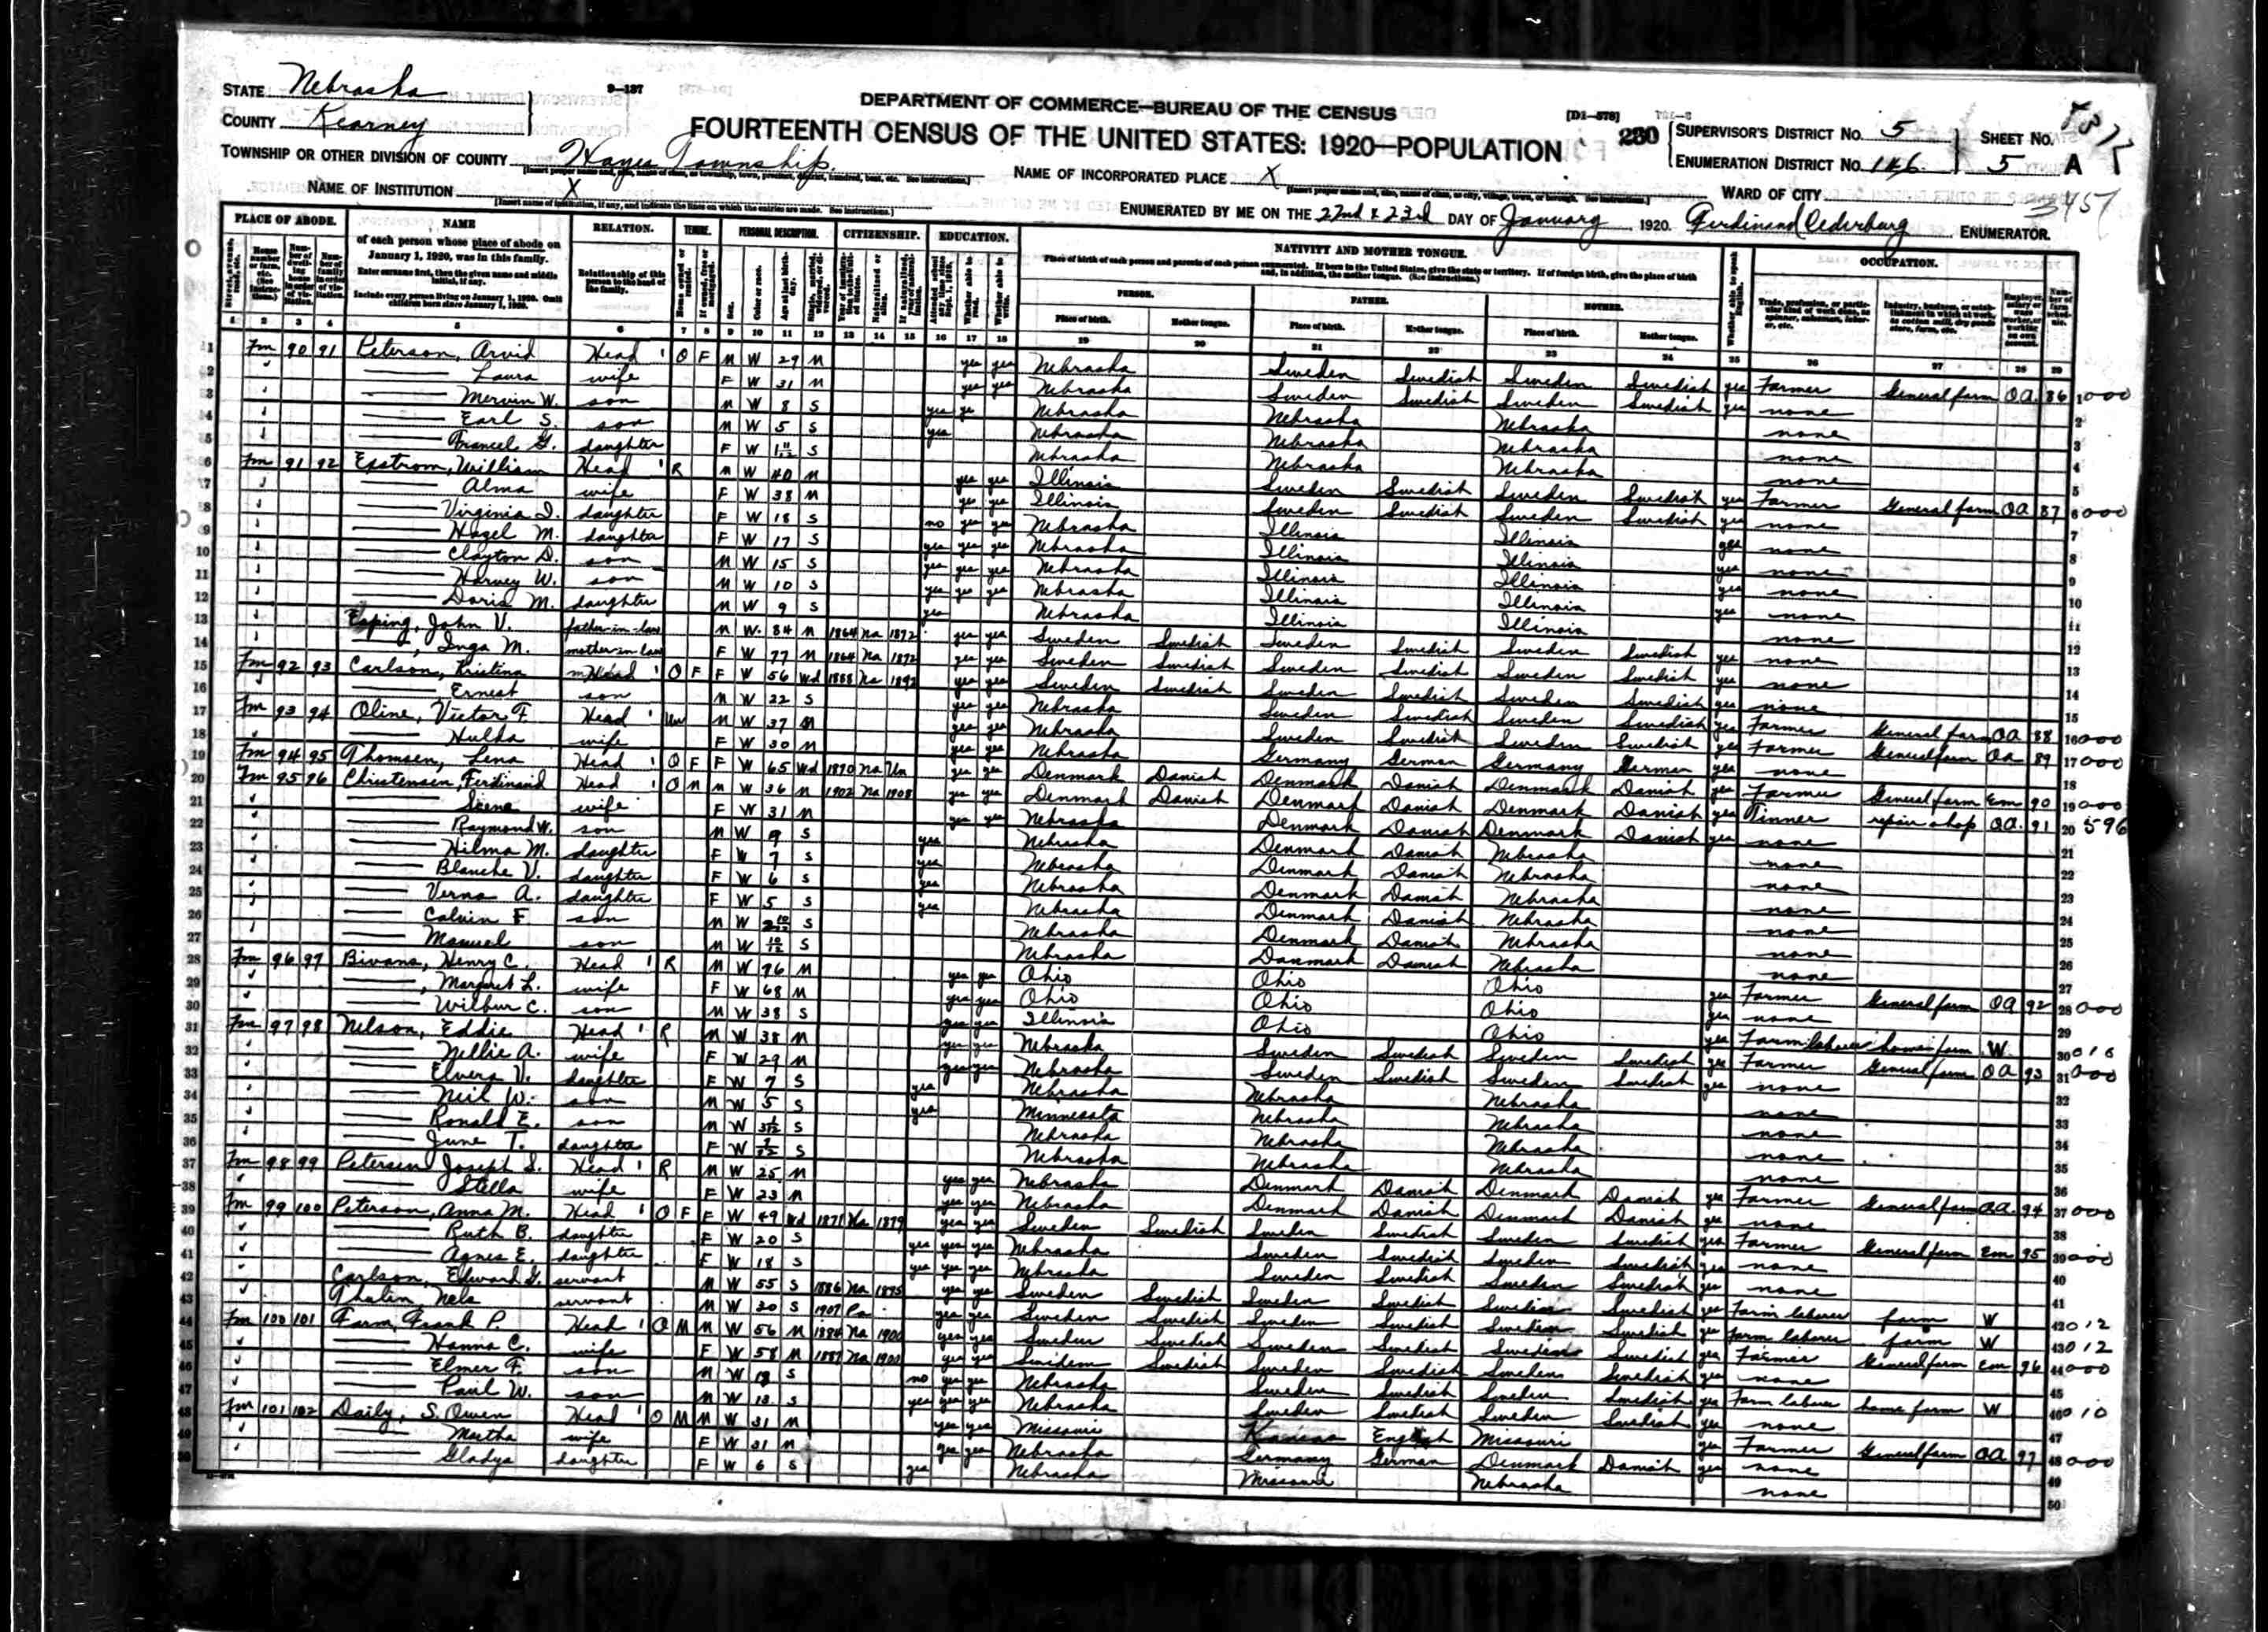 STATE Nebraska
COUNTY Kearney
9—137
DEPARTMENT OF COMMERCE—BUREAU OF THE CENSUS
[D1—578]
FOURTEENTH CENSUS OF THE UNITED STATES: 1920—POPULATION
280
SUPERVISOR'S DISTRICT No. 5
SHEET No.
ENUMERATION DISTRICT No. 146
5 A
TOWNSHIP OR OTHER DIVISION OF COUNTY Hayes Township.
NAME OF INCORPORATED PLACE X
NAME OF INSTITUTION X
WARD OF CITY
ENUMERATED BY ME ON THE 22nd & 23rd DAY OF January 1920. Ferdinand Cederburg ENUMERATOR.
PLACE OF ABODE. NAME RELATION. TENURE. PERSONAL DESCRIPTION. CITIZENSHIP. EDUCATION. NATIVITY AND MOTHER TONGUE. OCCUPATION.
of each person whose place of abode on January 1, 1920, was in this family.
Enter surname first, then the given name and middle initial, if any.
Include every person living on January 1, 1920. Omit children born since January 1, 1920.
Relationship of this person to the head of the family.
PERSON. FATHER. MOTHER.
Place of birth. Mother tongue. Place of birth. Mother tongue. Place of birth. Mother tongue.
1 2 3 4 5 6 7 8 9 10 11 12 13 14 15 16 17 18 19 20 21 22 23 24 25 26 27 28 29
1 Fm 90 91 Peterson, Arvid Head O F M W 29 M yes yes Nebraska Sweden Swedish Sweden Swedish yes Farmer General farm OA 86
2 Laura wife F W 31 M yes yes Nebraska Sweden Swedish Sweden Swedish yes none
3 Mervin W. son M W 8 S yes Nebraska Nebraska Nebraska none
4 Earl S. son M W 5 S yes Nebraska Nebraska Nebraska none
5 daughter F W 1 11/12 S Nebraska Nebraska Nebraska none
6 Fm 91 92 William Head R M W 40 M yes yes Illinois Sweden Swedish Sweden Swedish yes Farmer General farm OA 87
7 Alma wife F W 38 M yes yes Illinois Sweden Swedish Sweden Swedish yes none
8 Virginia daughter F W 18 S no yes yes Nebraska Illinois Illinois yes none
9 Hazel M. daughter F W 17 S yes yes yes Nebraska Illinois Illinois yes none
10 Clayton D. son M W 15 S yes yes yes Nebraska Illinois Illinois yes none
11 Harvey W. son M W 10 S yes yes yes Nebraska Illinois Illinois yes none
12 Doris M. daughter M W 9 S yes Nebraska Illinois Illinois none
13 Esping, John V. father-in-law M W 84 M 1864 Na 1872 yes yes Sweden Swedish Sweden Swedish Sweden Swedish yes none
14 Inga M. mother-in-law F W 77 M 1864 Na 1872 yes yes Sweden Swedish Sweden Swedish Sweden Swedish yes none
15 Fm 92 93 Carlson, Kristina Head O F F W 56 Wd 1888 Na 1892 yes yes Sweden Swedish Sweden Swedish Sweden Swedish yes none
16 Ernest son M W 22 S yes yes Nebraska Sweden Swedish Sweden Swedish yes Farmer General farm OA 88
17 Fm 93 94 Oline, Victor F. Head Un M W 37 M yes yes Nebraska Sweden Swedish Sweden Swedish yes Farmer General farm OA 89
18 Hulda wife F W 30 M yes yes Nebraska Germany German Germany German yes none
19 Fm 94 95 Thomsen, Lena Head O F F W 65 Wd 1890 Na Un yes yes Denmark Danish Denmark Danish Denmark Danish yes Farmer General farm Em 90
20 Fm 95 96 Christensen, Ferdinand Head O M M W 36 M 1902 Na 1908 yes yes Denmark Danish Denmark Danish Denmark Danish yes Tinner repair shop OA 91
21 wife F W 31 M yes yes Nebraska Denmark Danish Denmark Danish yes none
22 Raymond W. son M W 9 S yes Nebraska Denmark Danish Nebraska none
23 Hilma M. daughter F W 7 S yes Nebraska Denmark Danish Nebraska none
24 Blanche V. daughter F W 6 S yes Nebraska Denmark Danish Nebraska none
25 Verna A. daughter F W 5 S yes Nebraska Denmark Danish Nebraska none
26 Calvin F. son M W 2 10/12 S Nebraska Denmark Danish Nebraska none
27 Manuel son M W 10/12 S Nebraska Danmark Danish Nebraska none
28 Fm 96 97 Bivans, Henry C. Head R M W 76 M yes yes Ohio Ohio Ohio yes Farmer General farm OA 92
29 Margaret L. wife F W 68 M yes yes Ohio Ohio Ohio yes none
30 Wilbur C. son M W 38 S yes yes Illinois Ohio Ohio yes Farm laborer home farm W
31 Fm 97 98 Nelson, Eddie Head R M W 38 M yes yes Nebraska Sweden Swedish Sweden Swedish yes Farmer General farm OA 93
32 Nellie A. wife F W 29 M yes yes Nebraska Sweden Swedish Sweden Swedish yes none
33 Elvera V. daughter F W 7 S yes Nebraska Nebraska Nebraska none
34 Neil W. son M W 5 S yes Minnesota Nebraska Nebraska none
35 Ronald E. son M W S Nebraska Nebraska Nebraska none
36 June T. daughter F W S Nebraska Nebraska Nebraska none
37 Fm 98 99 Petersen Joseph S. Head R M W 25 M yes yes Nebraska Denmark Danish Denmark Danish yes Farmer General farm OA 94
38 Stella wife F W 23 M yes yes Nebraska Denmark Danish Denmark Danish yes none
39 Fm 99 100 Peterson, Anna M. Head O F F W 49 Wd 1871 Na 1879 yes yes Sweden Swedish Sweden Swedish Sweden Swedish yes Farmer General farm Em 95
40 Ruth B. daughter F W 20 S yes yes yes Nebraska Sweden Swedish Sweden Swedish yes none
41 Agnes E. daughter F W 18 S yes yes yes Nebraska Sweden Swedish Sweden Swedish yes none
42 Carlson, Edward G. servant M W 55 S 1886 Na 1895 yes yes Sweden Swedish Sweden Swedish Sweden Swedish yes Farm laborer farm W
43 Thalin, Nels servant M W 30 S 1907 Pa yes yes Sweden Swedish Sweden Swedish Sweden Swedish yes Farm laborer farm W
44 Fm 100 101 Farm, Frank P. Head O M M W 56 M 1884 Na 1900 yes yes Sweden Swedish Sweden Swedish Sweden Swedish yes Farmer General farm Em 96
45 Hanna C. wife F W 58 M 1887 Na 1900 yes yes Sweden Swedish Sweden Swedish Sweden Swedish yes none
46 Elmer F. son M W 18 S no yes yes Nebraska Sweden Swedish Sweden Swedish yes Farm laborer home farm W
47 Paul W. son M W 13 S yes yes yes Nebraska Sweden Swedish Sweden Swedish yes none
48 Fm 101 102 Daily, S. Owen Head O M M W 31 M yes yes Missouri Kansas English Missouri yes Farmer General farm OA 97
49 Martha wife F W 31 M yes yes Nebraska Germany German Denmark Danish yes none
50 Gladys daughter F W 6 S yes Nebraska Missouri Nebraska none